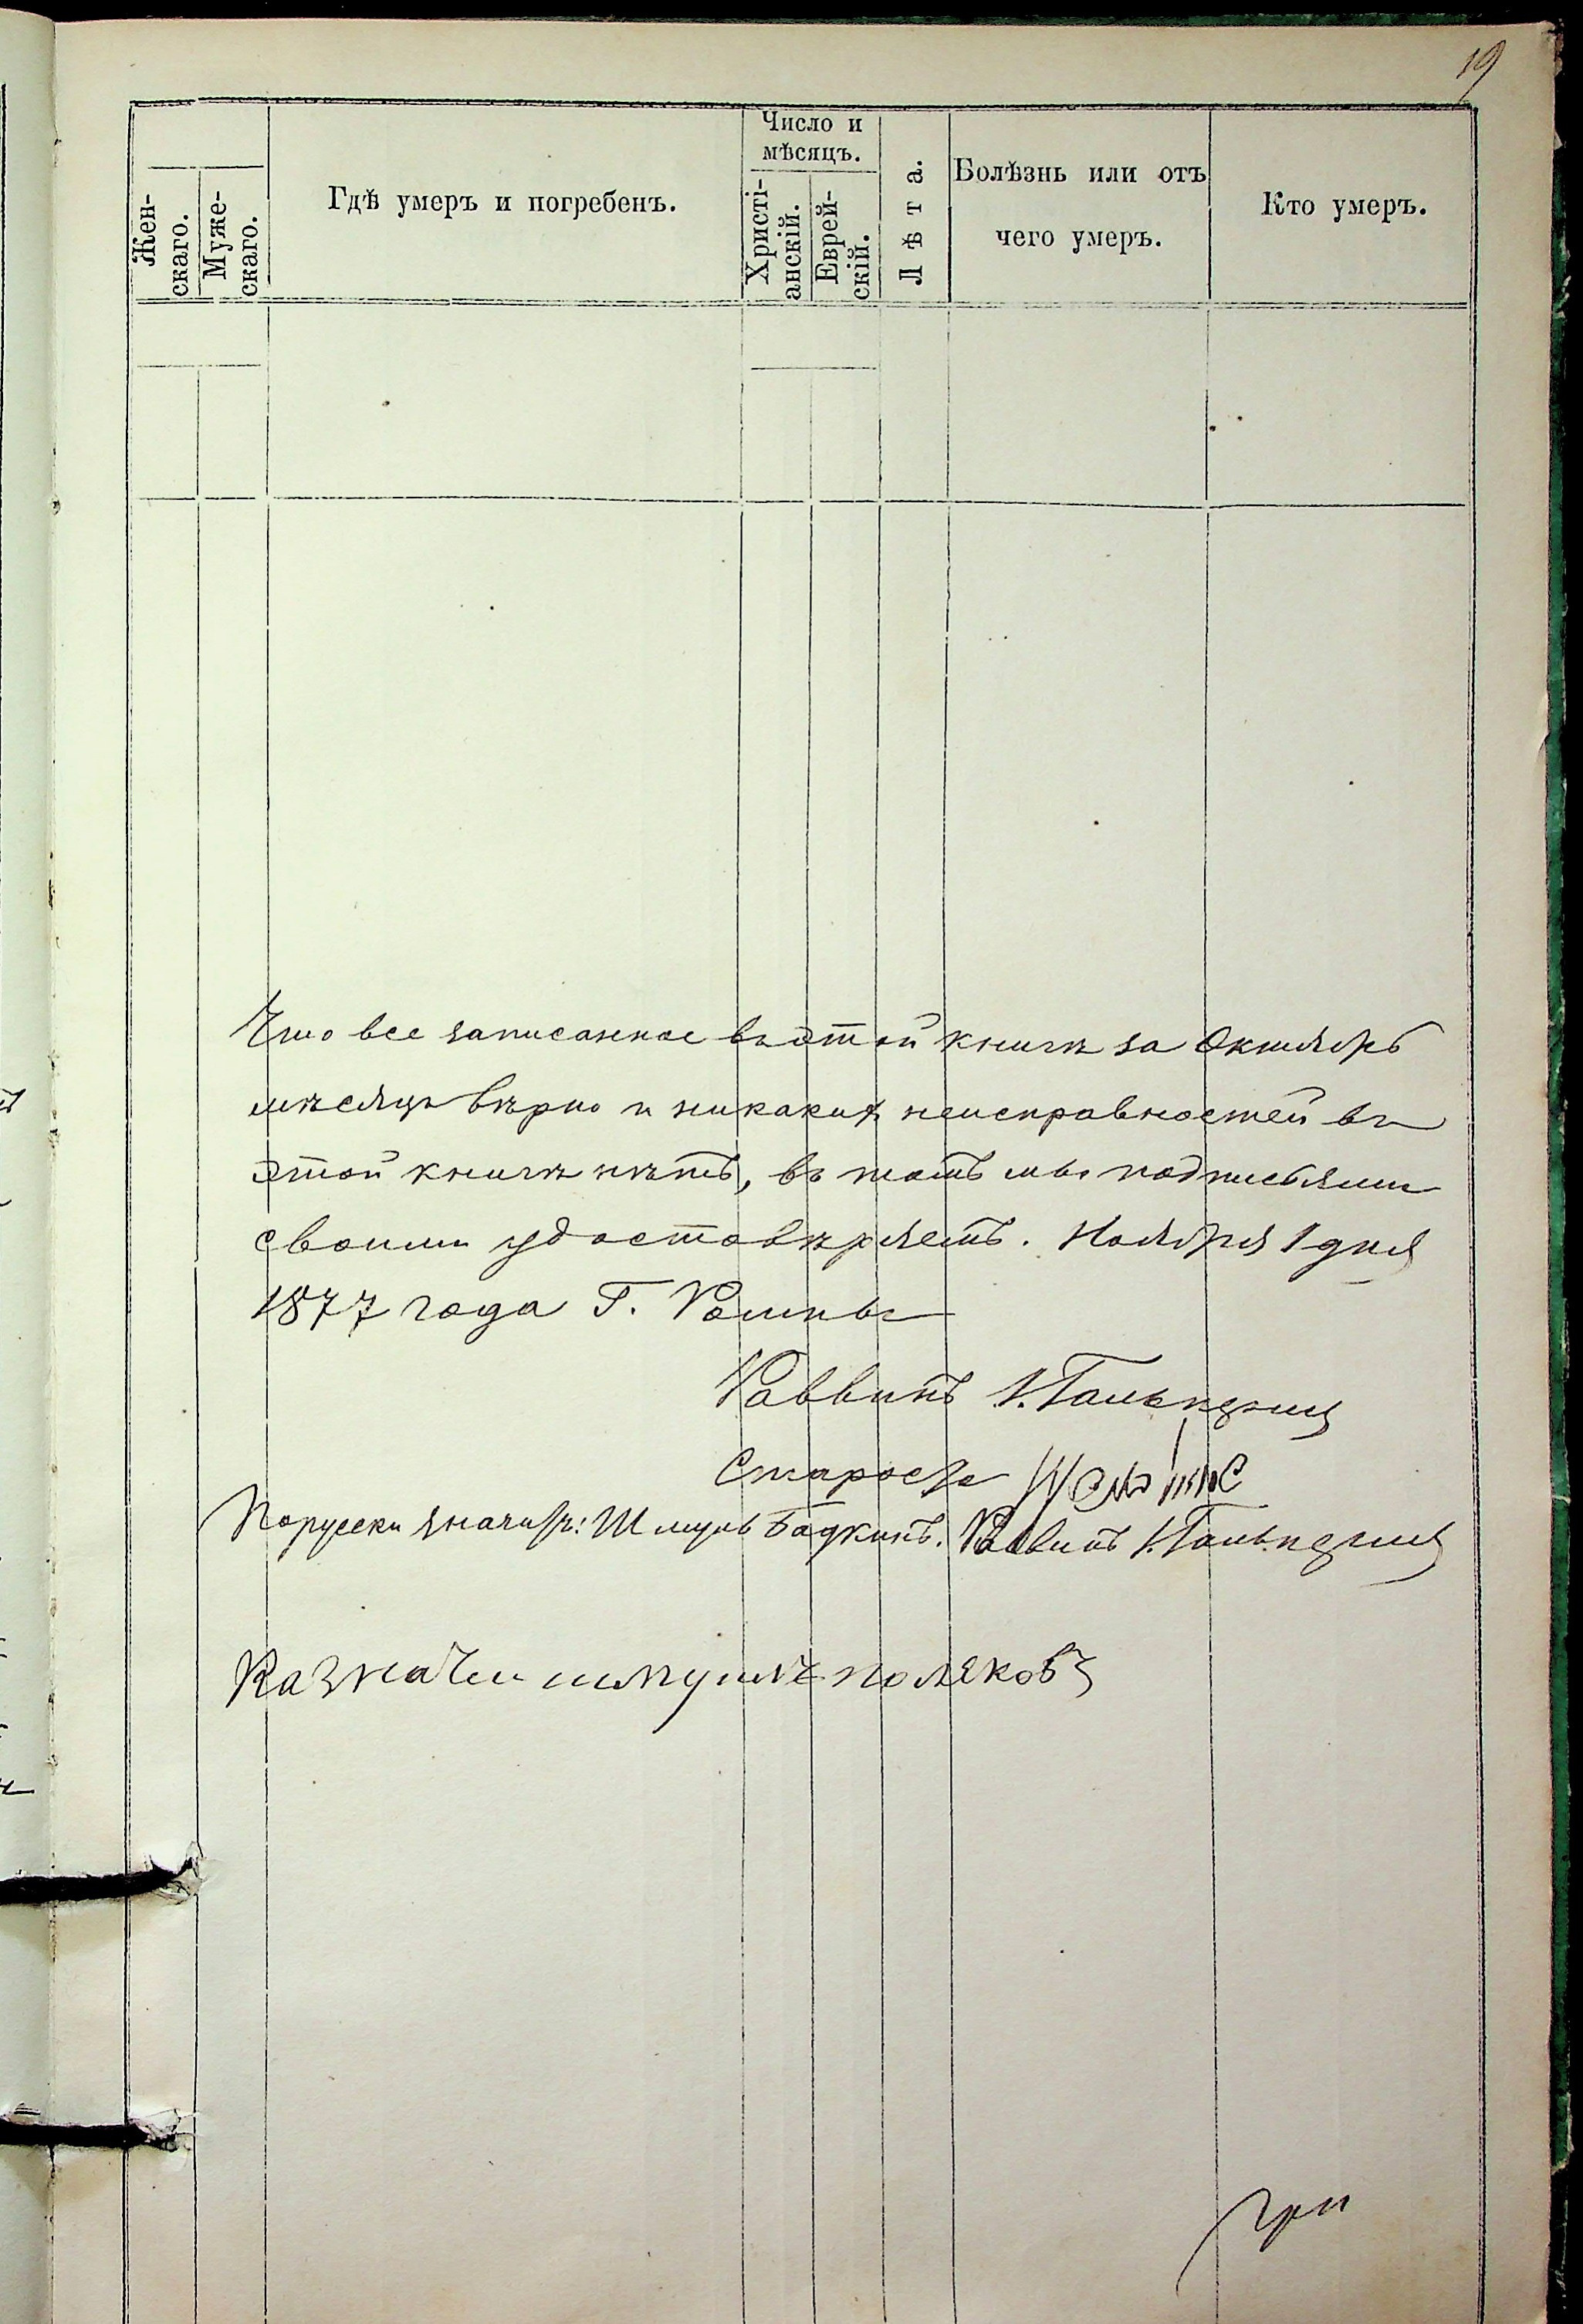 19
Жен-
скаго.
Муже-
скаго.
Гдѣ умеръ и погребенъ.
Число и
мѣсяцъ.
Христі-
анскій.
Еврей-
скій.
Лѣта.
Болѣзнь или отъ
чего умеръ.
Кто умеръ.
Что все записанное въ этой книгѣ за Октябрь
мѣсяцъ вѣрно и никакихъ неисправностей въ
этой книгѣ нѣтъ, въ томъ мы подписьями
своими удостовѣряемъ. Ноября 1 дня
1877 года Г. Ромны
Раввинъ
Староста
По русски значитъ: Шмуль Бадкинъ. Раввинъ
Казначеи шмуилъ поляковъ